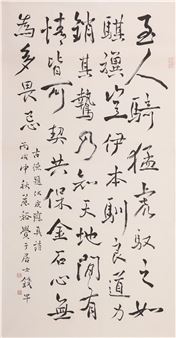 至人騎猛虎馭之如
騏驥豈伊本馴良道力
銷其鷙乃知天地間有
情皆可契共保金石心無
為多畏忌
古德題
丙戌仲秋 居士錢